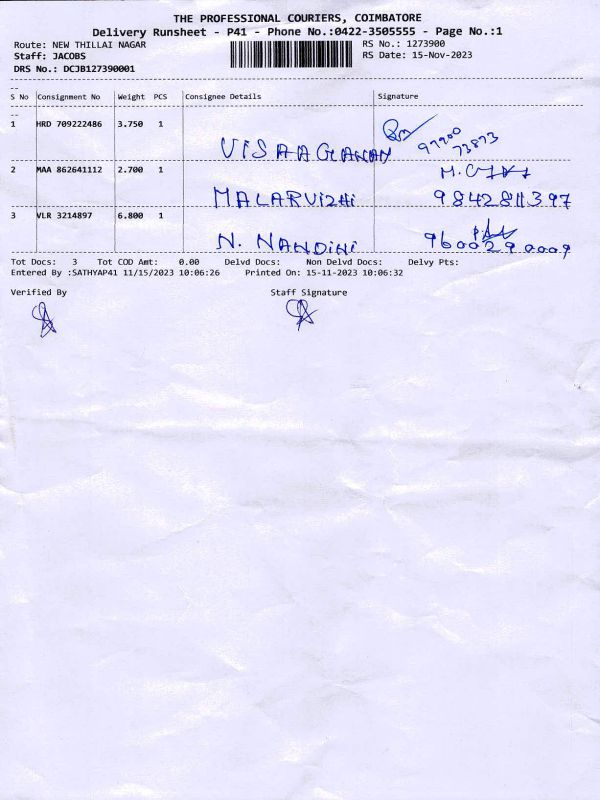 THE PROFESSIONAL COURIERS, COIMBATORE
Delivery Runsheet - P41 - Phone No.:0422-3505555 - Page No.:1
Route: NEW THILLAI NAGAR RS No.: 1273900
Staff: JACOBS RS Date: 15-Nov-2023
DRS No.: DCJB127390001
S No Consignment No Weight PCS Consignee Details Signature
1 HRD 709222486 3.750 1
97900
73873
2 MAA 862641112 2.700 1
MALARVIZHI 9842811397
3 VLR 3214897 6.800 1
N. NANDINI 9600290009
Tot Docs: 3 Tot COD Amt: 0.00 Delvd Docs: Non Delvd Docs: Delvy Pts:
Entered By :SATHYAP41 11/15/2023 10:06:26 Printed On: 15-11-2023 10:06:32
Verified By Staff Signature